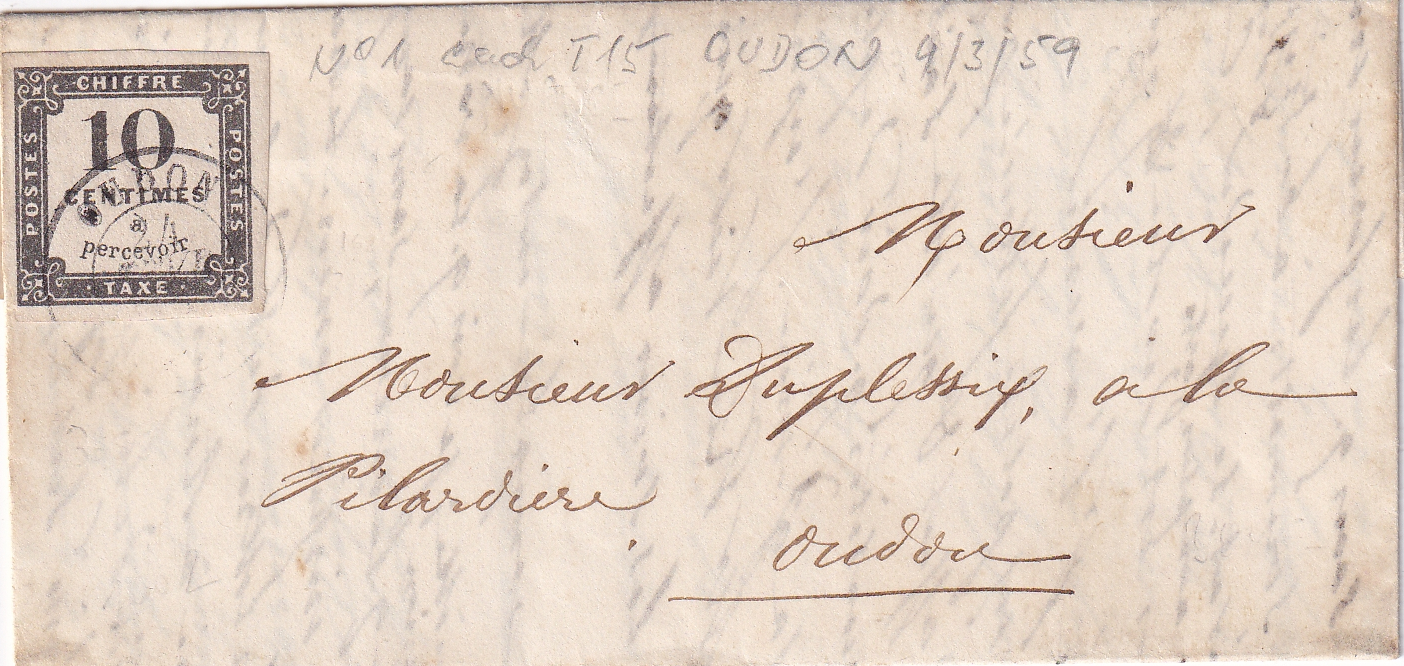 N°1 cad T15 OUDON 9/3/59
CHIFFRE
POSTES
10
CENTIMES
à
percevoir
TAXE
POSTES
OUDON
Monsieur
Monsieur Duplessix, a la
Pilardiere
oudon